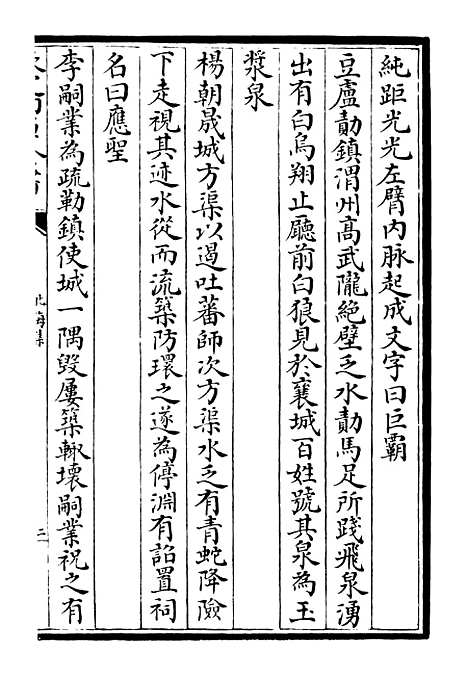 純距光光左臂内脉起成文字曰巨霸
豆盧勣鎮渭州髙武隴絶壁乏水勣馬足所踐飛泉湧
出有白烏翔止廳前白狼見於襄城百姓號其泉為玉
漿泉
楊朝晟城方渠以遏吐蕃師次方渠水乏有青蛇降險
下走視其迹水從而流築防環之遂為停淵有詔置祠
名曰應聖
李嗣業為疏勒鎮使城一隅毁屢築輙壊嗣業祝之有
三